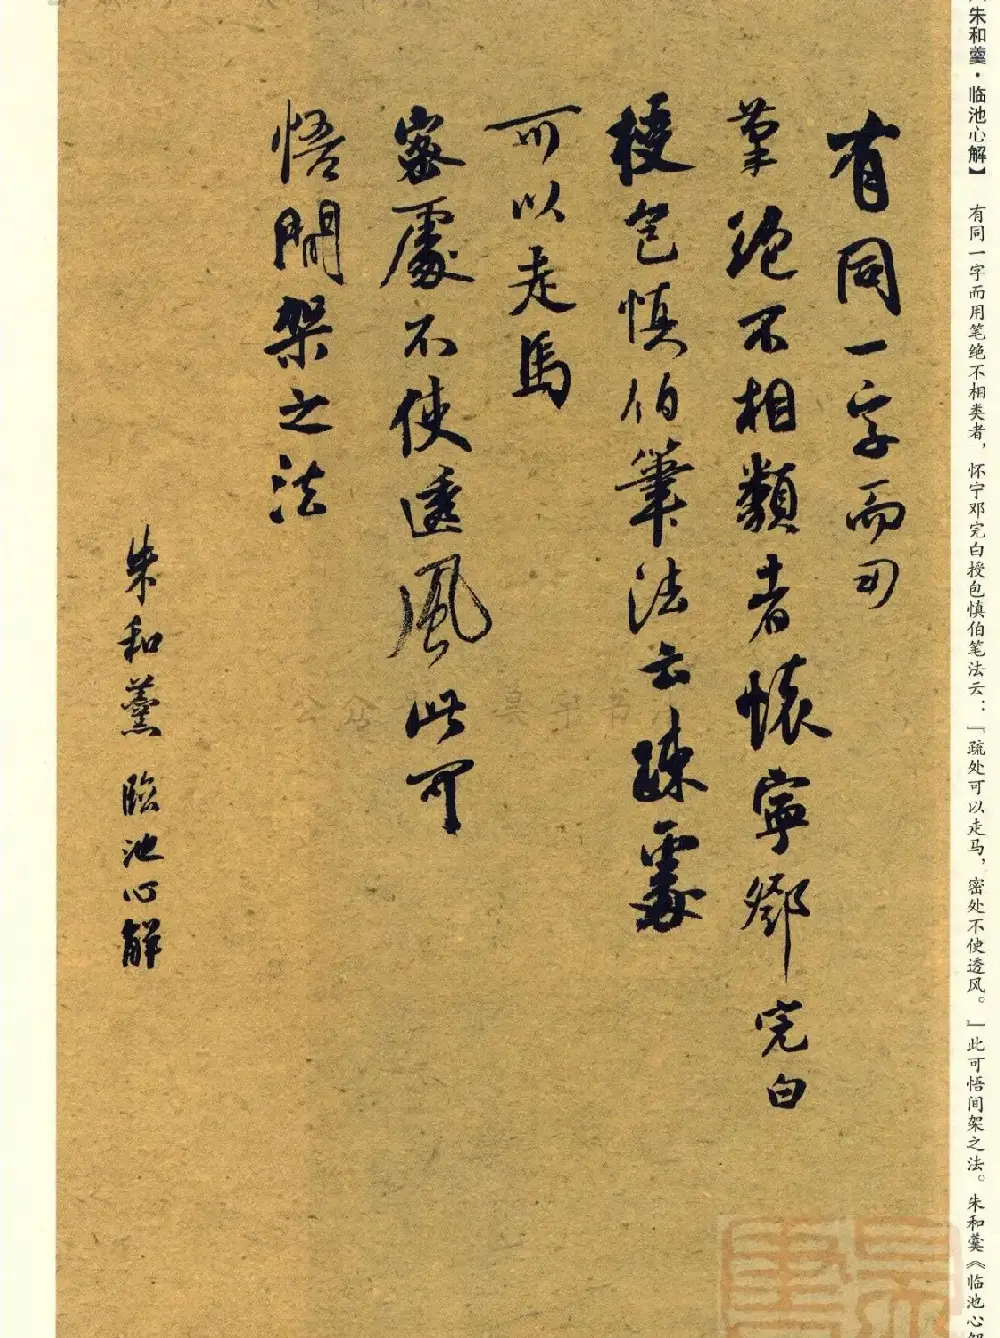 朱和羹·临池心解】 有同一字而用笔绝不相类者，怀宁邓完白授包慎伯笔法云：「疏处可以走马，密处不使透风。」此可悟间架之法。朱和羹《临池心
有同一字而用
筆絕不相類者懷寧鄧完白
授包慎伯筆法云疎處
可以走馬
密處不使透風此可
悟間架之法
朱和羹 臨池心解